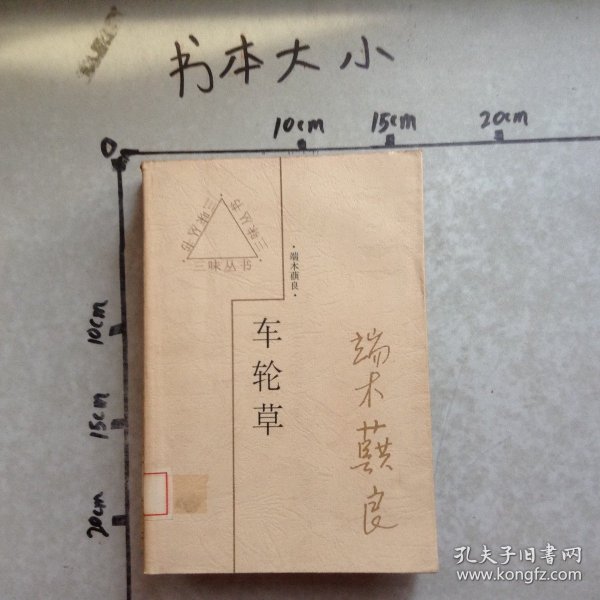 书本大小
0
10cm
15cm
20cm
10cm
15cm
20cm
三味丛书
三味丛书
三味丛书
·端木蕻良·
车轮草
端木蕻良
孔夫子旧书网
www.kongfz.com